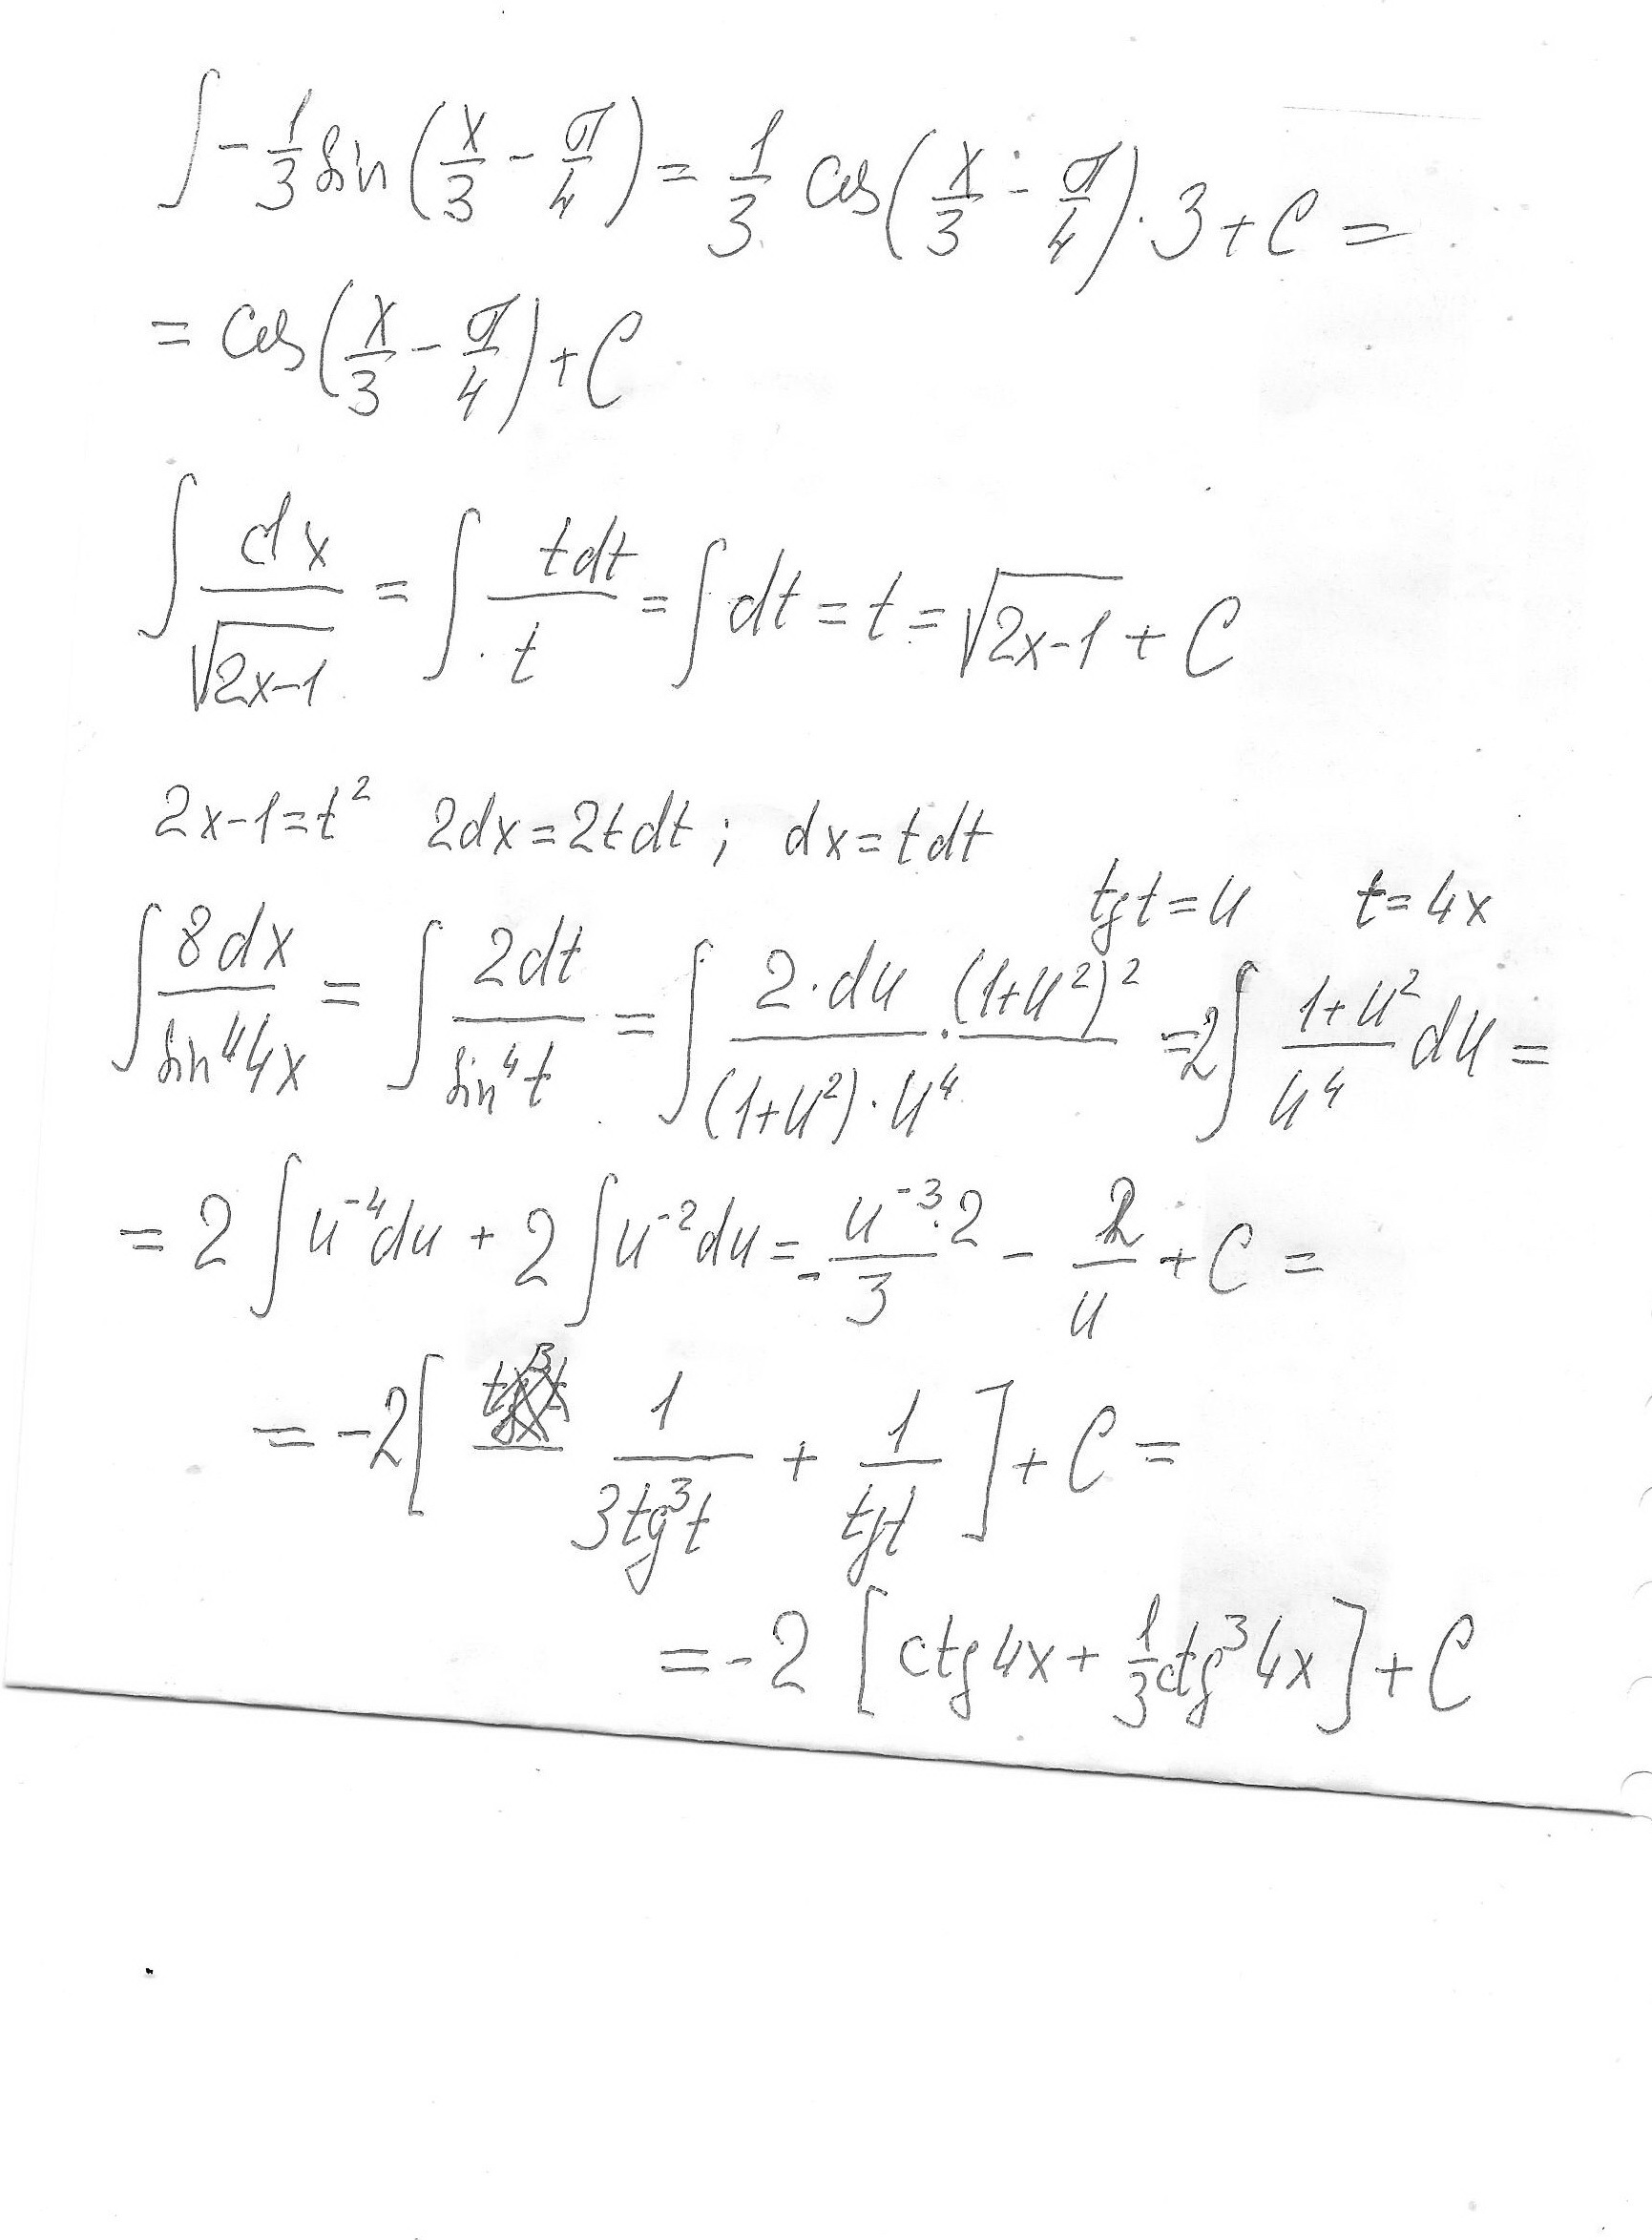 ∫ -1/3 sin(x/3 - π/4) = 1/3 cos(x/3 - π/4)·3 + C =
= cos(x/3 - π/4) + C
∫ dx/√(2x-1) = ∫ tdt/t = ∫ dt = t = √(2x-1) + C
2x-1=t² 2dx=2tdt; dx=tdt
tgt=u t=4x
∫ 8dx/sin⁴4x = ∫ 2dt/sin⁴t = ∫ 2·du/((1+u²)·u⁴) · (1+u²)² = 2∫ (1+u²)/u⁴ du =
= 2∫u⁻⁴du + 2∫u⁻²du = - u⁻³·2/3 - 2/u + C =
= -2[ 1/(3tg³t) + 1/tgt ] + C =
= -2 [ctg4x + 1/3 ctg³4x] + C